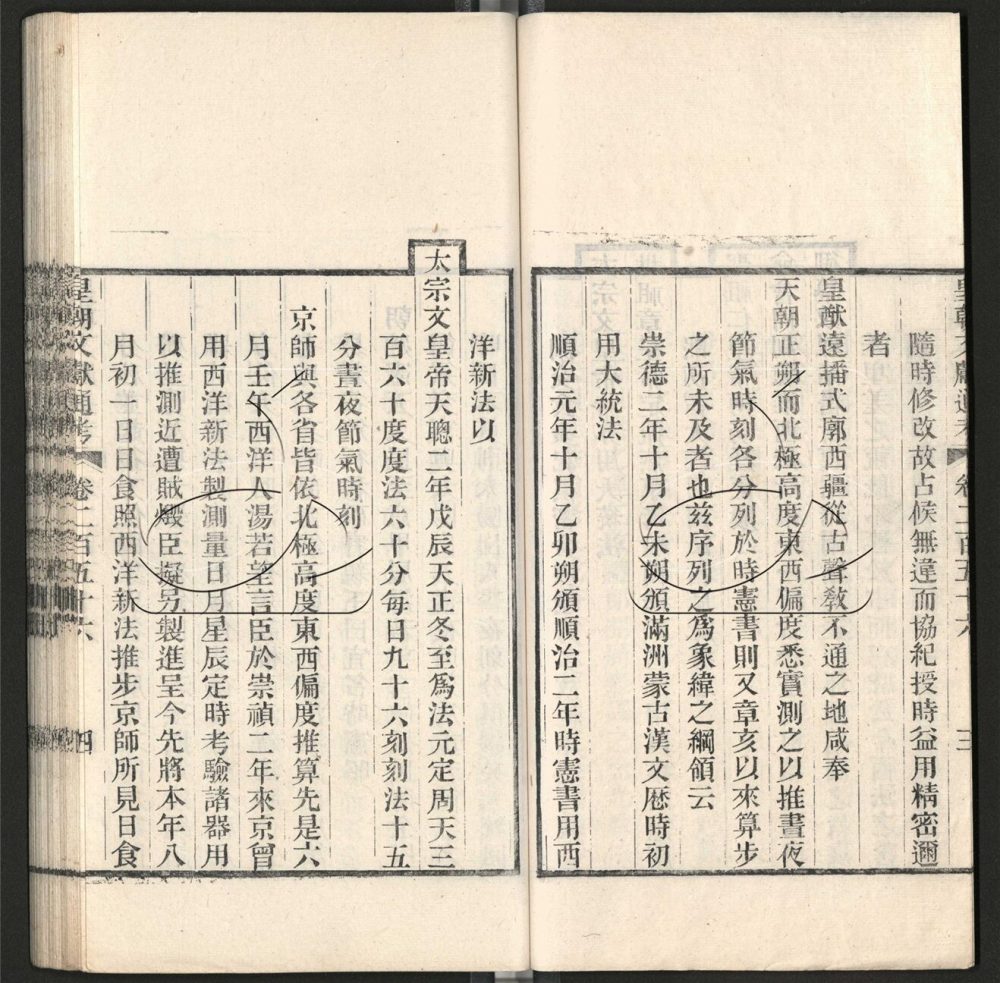 皇朝文獻通考 卷二百五十六 三
隨時修改故占候無違而協紀授時益用精密邇
者
皇猷遠播式廓西疆從古聲敎不通之地咸奉
天朝正朔而北極高度東西偏度悉實測之以推晝夜
節氣時刻各分列於時憲書則又章亥以來算步
之所未及者也玆序列之爲象緯之綱領云
崇德二年十月乙未朔頒滿洲蒙古漢文曆時初
用大統法
順治元年十月乙卯朔頒順治二年時憲書用西
洋新法以
太宗文皇帝天聰二年戊辰天正冬至爲法元定周天三
百六十度度法六十分每日九十六刻刻法十五
分晝夜節氣時刻
京師與各省皆依北極高度東西偏度推算先是六
月壬午西洋人湯若望言臣於崇禎二年來京曾
用西洋新法製測量日月星辰定時考驗諸器用
以推測近遭賊燬臣擬另製進呈今先將本年八
月初一日日食照西洋新法推步京師所見日食
皇朝文獻通考 卷二百五十六 四